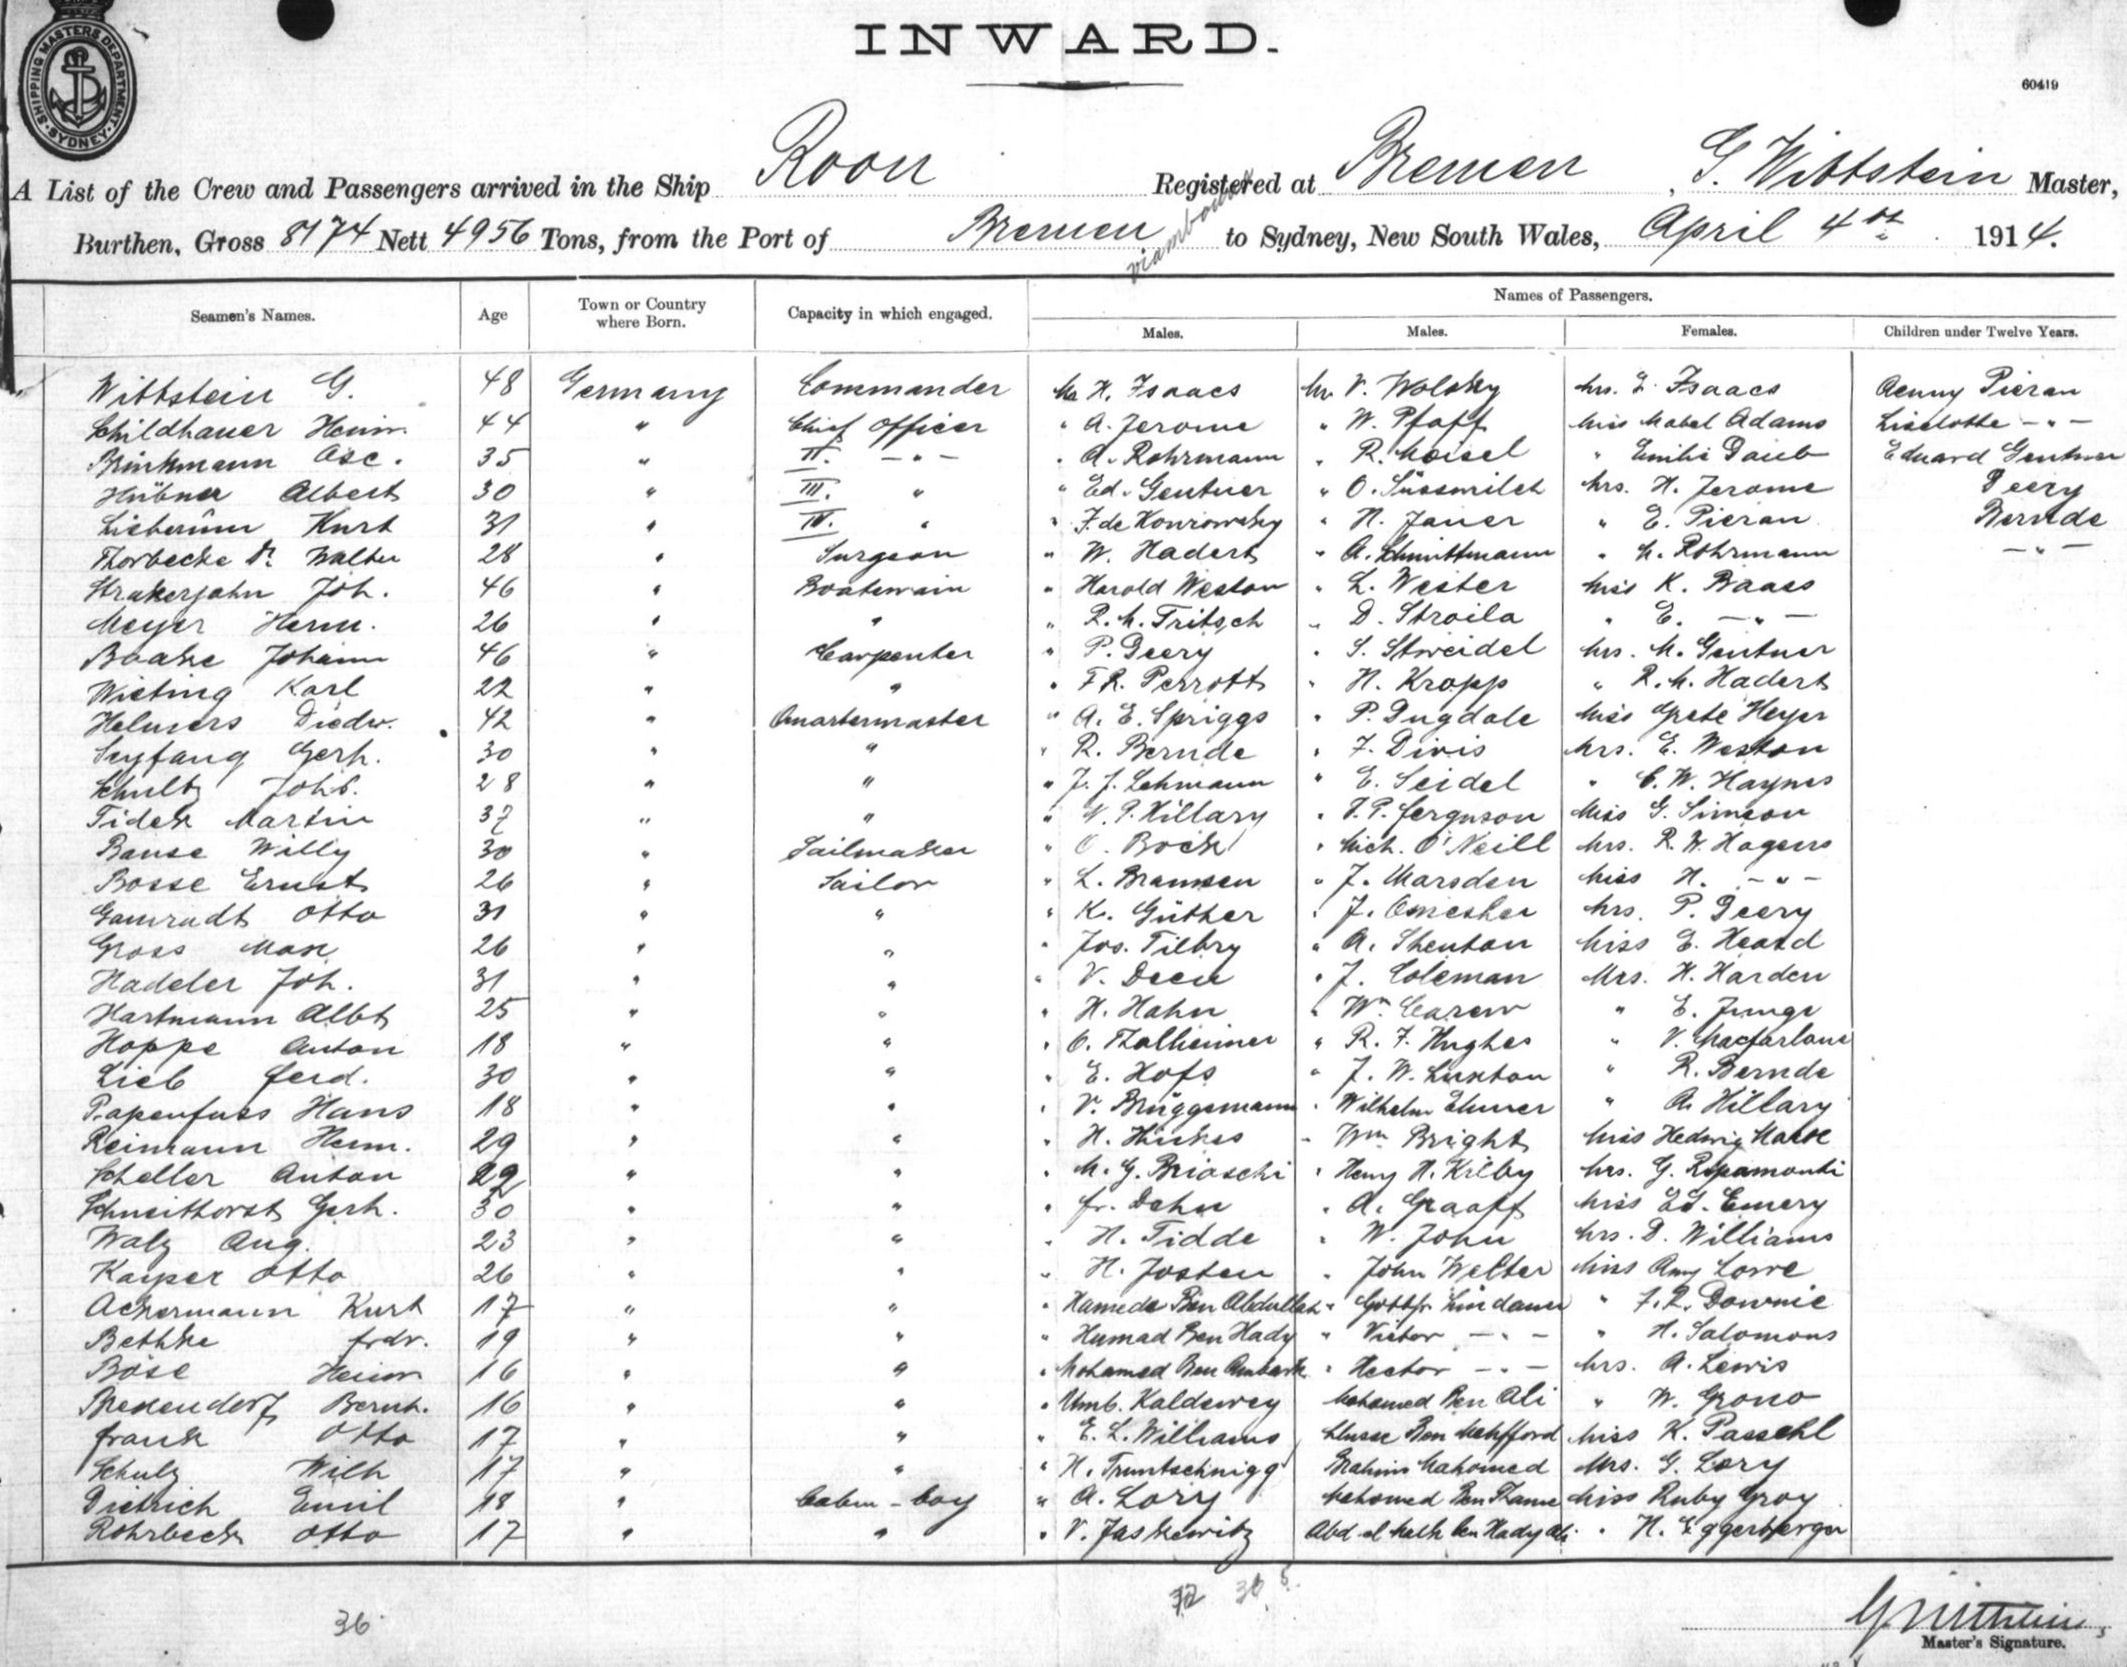 SHIPPING MASTERS DEPARTMENT. SYDNEY.
INWARD.
60419
A List of the Crew and Passengers arrived in the Ship Roon Registered at Bremen, G. Wittstein Master,
Burthen, Gross 8174 Nett 4956 Tons, from the Port of Bremen to Sydney, New South Wales, April 4th 1914.
Seamen's Names. Age Town or Country where Born. Capacity in which engaged. Names of Passengers.
Males. Males. Females. Children under Twelve Years.
Wittstein G. 48 Germany Commander Mr H. Isaacs Mr. V. Wolsky Mrs. E. Isaacs Aenny Pieran
Schildhauer Heinr. 44 " Chief Officer " A. Jerome " W. Pfaff Miss Mabel Adams Liselotte - " -
Brinkmann Osc. 35 " II. - " - " A. Rohrmann " R. Meisel " Emilie Daub Eduard Gentner
Hübner Albert 30 " III. " " Ed. Gentner " O. Süssmilch Mrs. H. Jerome Deery
Kurt 31 " IV. " " F. de " H. Janer " E. Pieran Bernde
Thorbecke Dr. Walter 28 " Surgeon " W. Hadert " A. Schmittmann " M. Rohrmann - " -
Strakerjahn Joh. 46 " Boatswain " Harold Weston " L. Wester Miss K. Baass
Meyer Herm. 26 " " " R. M. Fritsch " D. Stroila " E. - " -
Baake Johann 46 " Carpenter " P. Deery " S. Streidel Mrs. M. Gentner
Wieting Karl 22 " " " F R. Perrott " H. Kropp " R. M. Hadert
Helmers Diedr. 42 " Quartermaster " A. E. Spriggs " P. Dugdale Miss Grete Heyer
Seyfang Gerh. 30 " " " R. Bernde " F. Divis Mrs. E. Weston
Schultz Johs. 28 " " " J. J. Lehmann " E. Seidel " C. W. Haynes
Tidek Martin 37 " " " P. Hillary " P. Ferguson Miss G. Simson
Banse Willy 30 " Sailmaker " O. Bock " Mich. O'Neill Mrs. R. W. Hagens
Bosse Ernst 26 " Sailor " L. Bramsen " J. Marsden Miss H. - " -
Gamradt Otto 31 " " " K. Güther " J. Mrs. P. Deery
Gross Max 26 " " " Jos. Tilbry " A. Shenton Miss E. Heard
Hadeler Joh. 31 " " " V. Deen " J. Coleman Mrs. H. Harden
Hartmann Albt 25 " " " H. Hahn " Wm Carew " E. Junge
Hoppe Anton 18 " " " O. Thalheimer " R. F. Hughes " V. Macfarlane
Lieb Ferd. 30 " " " E. Hofs " J. W. Luxton " R. Bernde
Papenfuss Hans 18 " " " V. Brüggemann " Wilhelm Elmer " A. Hillary
Reimann Herm. 29 " " " H. " Wm Bright Miss Hedwig
Scheller Anton 22 " " " M. G. Brioschi " Henry H. Kilby Mrs. G. Ripamonti
Schneithorst Gerh. 30 " " " Fr. Dehn " A. Graaff Miss Ed. Emery
Walz Aug. 23 " " " H. Tidde " W. John Mrs. D. Williams
Kayser Otto 26 " " " H. Josten " John Welter Miss Amy Lowe
Ackermann Kurt 17 " " " Hameda Ben Abdullah " Gottfr Lindauer " F. R. Downie
Bethke Frdr. 19 " " " Humad Ben Hady " Victor - " - " H. Salomons
Böse Heinr 16 " " " Mohamed Ben Ambark " Hector - " - Mrs. A. Lewis
Brexendorf Bernh. 16 " " " Umb. Kaldewey Mohamed Ben Ali " W. Grono
Frank Otto 17 " " " E. L. Williams Ben Miss K. Paschl
Schulz Wilh 17 " " " H. Truntschnigg Brahim Mahomed Mrs. G. Lory
Dietrich Emil 18 " Cabin-boy " A. Lory Mohamed Ben Miss Ruby Groy
Rohrbeck Otto 17 " " " V. Jaskewitz Abd el Malk ben Hady Ali " H. Eggersberger
36 72 36 5
Master's Signature.